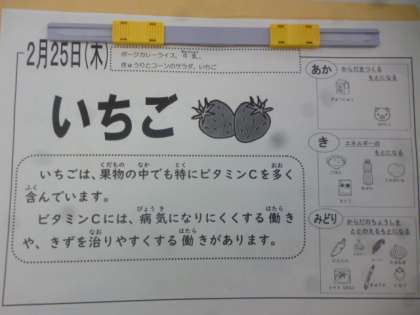 2月25日(木)
ポークカレーライス、牛乳、
きゅうりとコーンのサラダ、いちご
いちご
いちごは、果物の中でも特にビタミンCを多く
含んでいます。
ビタミンCには、病気になりにくくする働き
や、きずを治りやすくする働きがあります。
あか
からだをつくる
もとになる
ぎゅうにゅう
き
エネルギーの
もとになる
みどり
からだのちょうしを
ととのえるもとになる